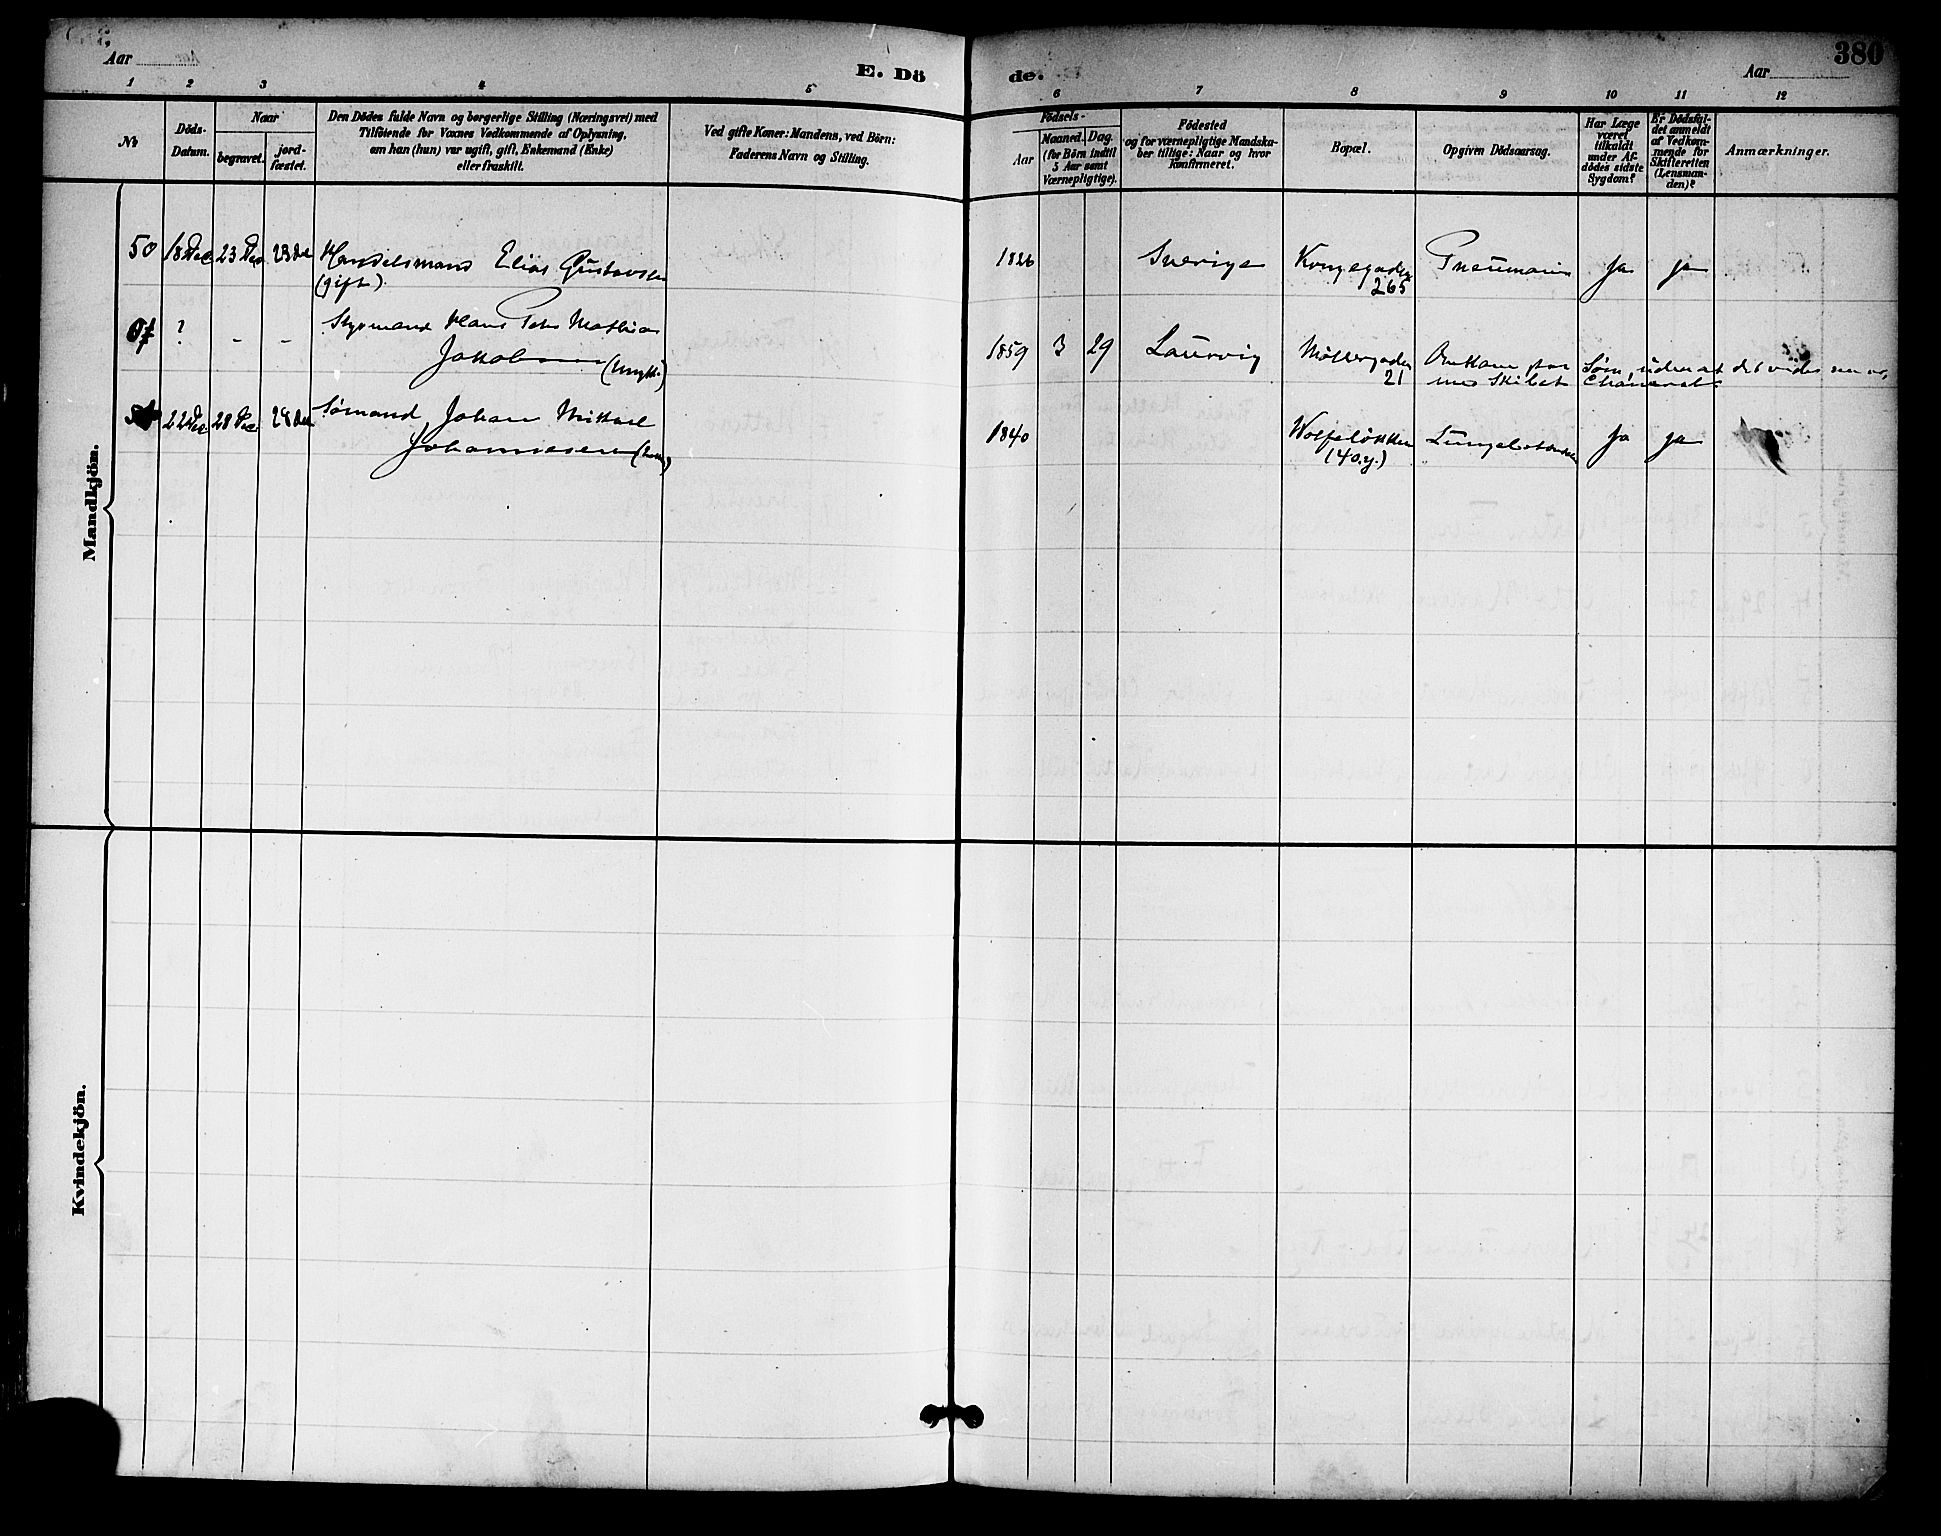 Aar
E. Dö
de.
Aar
380
1 2 3 4 5
6 7 8 9 10 11 12
№
Döds-
Datum.
Naar
begravet.
jord-
fæstet.
Den Dödes fulde Navn og borgerlige Stilling (Næringsvei) med
Tilföiende for Voxnes Vedkommende af Oplysning,
om han (hun) var ugift, gift, Enkemand (Enke)
eller fraskilt.
Ved gifte Koner: Mandens, ved Börn:
Faderens Navn og Stilling.
Födsels-
Aar
Maaned. Dag.
(for Börn indtil
5 Aar samt
Værnepligtige).
Födested
og for værnepligtige Mandska-
ber tillige: Naar og hvor
konfirmeret.
Bopæl.
Opgiven Dödsaarsag.
Har Læge
været
tilkaldt
under Af-
dödes sidste
Sygdom?
Er Dödsfal-
det anmeldt
af Vedkom-
mende for
Skifteretten
(Lensman-
den)?
Anmærkninger.
Mandkjön.
50 18 Dec 23 Dec 23 De Handelsmand Elias Gustavsen
(gift)
1826 Sverige Kongegaden
265
Pneumoni Ja ja
? - - Styrmand Hans Peter Mathias
Jakobsen
1859 3 29 Laurvig Møllergaden
21
Omkom,
med Skibet
22 Dec 28 Dec 28 Dec Sømand Johan Mikael
Johannesen
1840
(40.y.)
Ja ja
Kvindekjön.